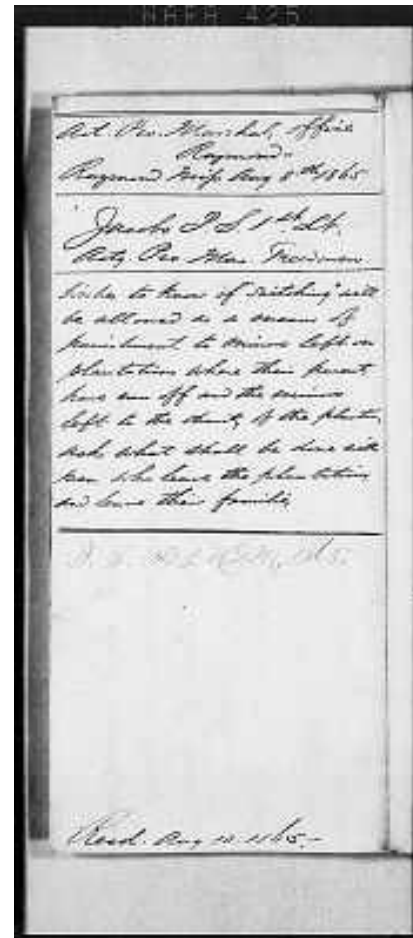 NARA 425
Act. Pro. Marshal, Office
Raymond
Raymond Miss Aug 8th 1865
Jacobs J S 1st Lt.
Actg Pro Mar Freedmen
Wishes to know if switching will
be allowed as a means of
punishment to minors left on
plantations where their parents
have run off and the minors
left to the charity of the planter,
ask what shall be done with
men who leave the plantation
and leave their families
Recd. Aug 10 1865